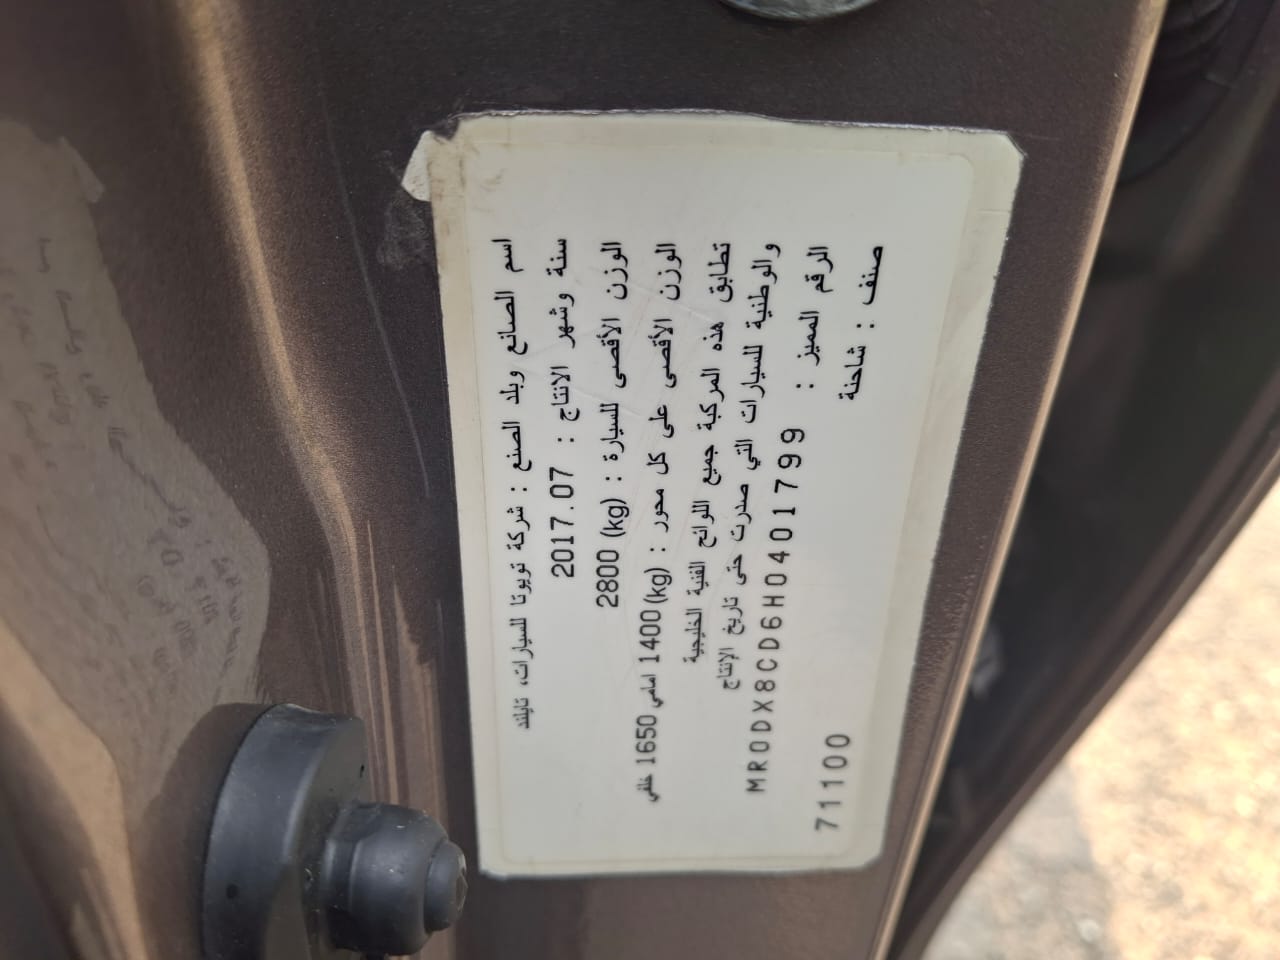 اسم الصانع وبلد الصنع : شركة تويوتا للسيارات، تايلند
سنة وشهر الانتاج : 2017.07
الوزن الأقصى للسيارة : (kg) 2800
الوزن الأقصى على كل محور : (kg) 1400 امامي 1650 خلفي
تطابق هذه المركبة جميع اللوائح الفنية الخليجية
والوطنية للسيارات التي صدرت حتى تاريخ الإنتاج
الرقم المميز : MR0DX8CD6H0401799
صنف : شاحنة
71100